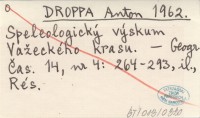 DROPPA Anton 1962.
Speleologický výskum
Važeckého krasu. — Geogr.
Čas. 14, nr 4: 264-293, il.,
Rés.